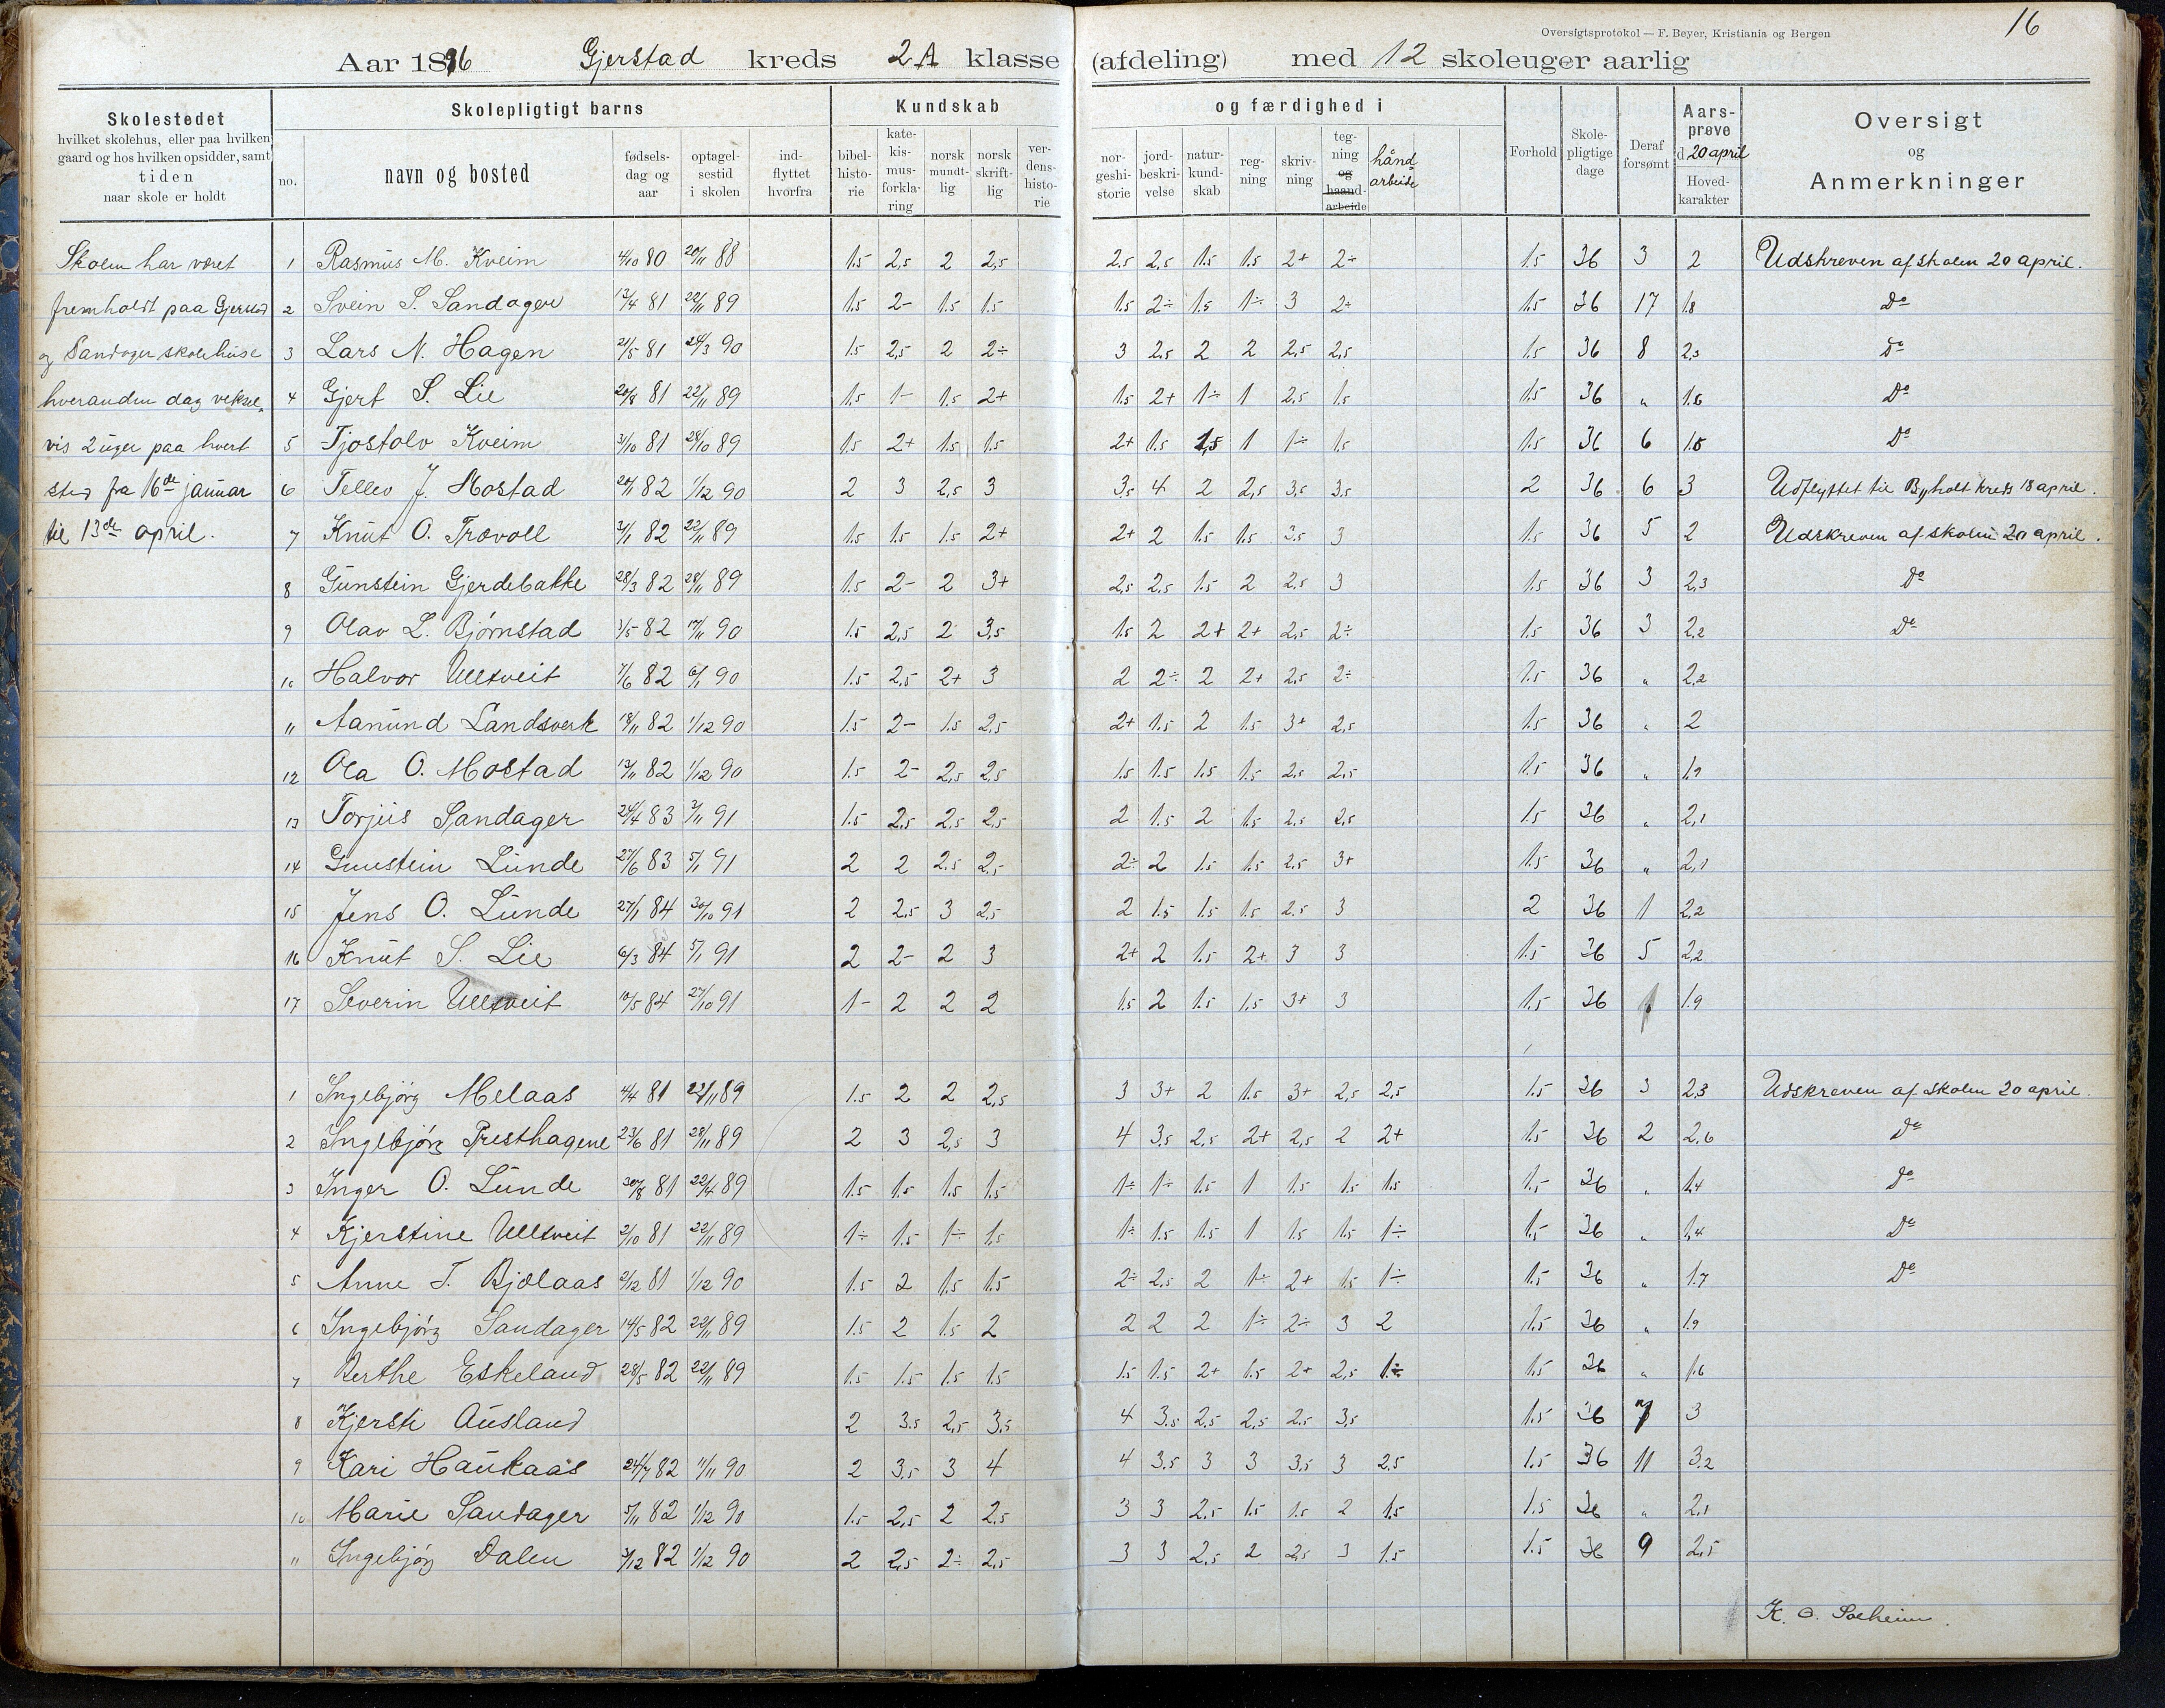 Oversigtsprotokol — F. Beyer, Kristiania og Bergen
16
Aar 1896 Gjerstad kreds 2A klasse (afdeling) med 12 skoleuger aarlig
Skolestedet
hvilket skolehus, eller paa hvilken
gaard og hos hvilken opsidder, samt
tiden
naar skole er holdt
Skolepligtigt barns
no.
navn og bosted
fødsels-
dag og
aar
optagel-
sestid
i skolen
ind-
flyttet
hvorfra
Kundskab
bibel-
histo-
rie
kate-
kis-
mus-
forkla-
ring
norsk
mundt-
lig
norsk
skrift-
lig
ver-
dens-
histo-
rie
og færdighed i
nor-
geshi-
storie
jord-
beskri-
velse
natur-
kund-
skab
reg-
ning
skriv-
ning
teg-
ning
og
haand-
arbeide
hånd
arbeide
Forhold
Skole-
pligtige
dage
Deraf
forsømt
Aars-
prøve
d 20 april
Hoved-
karakter
Oversigt
og
Anmerkninger
Skolen har været
fremholdt paa Gjerstad
og Sandager skolehuse
hveranden dag veksel-
vis 2 uger paa hvert
sted fra 16de januar
til 13de april.
1 Rasmus M. Kveim 4/10 80 20/11 88 1.5 2,5 2 2,5 2.5 2.5 1.5 1.5 2+ 2÷ 1.5 36 3 2 Udskreven af skolen 20 april.
2 Svein S. Sandager 13/4 81 22/11 89 1.5 2- 1.5 1.5 1.5 2÷ 1.5 1÷ 3 2÷ 1.5 36 17 1.8 Do
3 Lars N. Hagen 21/5 81 24/3 90 1.5 2,5 2 2÷ 3 2.5 2 2 2.5 2.5 1.5 36 8 2,3 Do
4 Gjert S. Lie 20/8 81 22/11 89 1.5 1- 1.5 2+ 1.5 2+ 1÷ 1 2.5 1.5 1.5 36 " 1.6 Do
5 Tjostolv Kveim 31/10 81 28/10 89 1.5 2+ 1.5 1.5 2+ 1.5 1,5 1 1÷ 1.5 1.5 36 6 1.5 Do
6 Tellev J. Mostad 20/1 82 1/12 90 2 3 2,5 3 3,5 4 2 2,5 3,5 3,5 2 36 6 3 Udflyttet til Byholt kreds 18 april.
7 Knut O. Trævoll 3/1 82 22/11 89 1.5 1.5 1.5 2+ 2+ 2 1.5 1.5 3.5 3 1.5 36 5 2 Udskreven af skolen 20 april.
8 Gunstein Gjerdebakke 28/3 82 28/11 89 1.5 2- 2 3+ 2,5 2,5 1.5 2 2.5 3 1.5 36 3 2,3 Do
9 Olav L. Bjørnstad 1/5 82 17/11 90 1.5 2,5 2 3,5 1.5 2 2+ 2+ 2,5 2÷ 1.5 36 3 2,2 Do
10 Halvor Ulltveit 7/6 82 6/1 90 1.5 2,5 2+ 3 2 2÷ 2 2+ 2,5 2÷ 1.5 36 " 2,2
11 Aamund Landsverk 18/11 82 1/12 90 1.5 2- 1.5 2,5 2+ 1.5 2 1.5 3+ 2,5 1.5 36 " 2
12 Ola O. Mostad 13/11 82 1/12 90 1.5 2- 2,5 2,5 1.5 1.5 1.5 1.5 2.5 2,5 1.5 36 " 1.9
13 Torjus Sandager 24/4 83 3/11 91 1.5 2,5 2,5 2,5 2 1.5 2 1.5 2.5 2,5 1.5 36 " 2,1
14 Gunstein Lunde 27/6 83 5/1 91 2 2 2,5 2,5 2÷ 2 1.5 1.5 2.5 3+ 1.5 36 " 2,1
15 Jens O. Lunde 27/1 84 30/10 91 2 2,5 3 2,5 2 1.5 1.5 1.5 2.5 3 2 36 1 2,2
16 Knut S. Lie 6/3 84 5/1 91 2 2- 2 3 2+ 2 1.5 2+ 3 3 1.5 36 5 2,2
17 Severin Ulltveit 10/5 84 27/10 91 1- 2 2 2 1.5 2 1.5 1,5 3+ 3 1.5 36 1.9
1 Ingebjørg Melaas 4/4 81 22/11 89 1.5 2 2 2,5 3 3+ 2 1.5 3+ 2,5 2,5 1.5 36 3 2,3 Udskreven af skolen 20 april.
2 Ingebjørg Presthagene 23/6 81 28/11 89 2 3 2,5 3 4 3,5 2,5 2+ 2,5 2 2+ 1.5 36 2 2,6 Do
3 Inger O. Lunde 30/8 81 22/4 89 1.5 1.5 1.5 1.5 1÷ 1÷ 1.5 1 1.5 1.5 1.5 1.5 36 " 1,4 Do
4 Kjerstine Ulltveit 2/10 81 22/11 89 1÷ 1.5 1÷ 1,5 1÷ 1.5 1.5 1 1.5 1.5 1÷ 1.5 36 " 1,4 Do
5 Anne T. Bjælaas 2/12 81 1/12 90 1.5 2 1.5 1.5 2÷ 2,5 2 1÷ 2+ 1.5 1÷ 1.5 36 " 1.7 Do
6 Ingebjørg Sandager 14/5 82 22/11 89 1.5 2 1.5 2 2 2 2 1÷ 2÷ 3 2 1.5 36 " 1.9
7 Berthe Eskeland 28/5 82 22/11 89 1.5 1.5 1.5 1.5 1.5 1.5 2+ 1.5 2+ 2,5 1÷ 1.5 36 " 1.6
8 Kjersti Ausland 2 3.5 2,5 3,5 4 3.5 2,5 2,5 2.5 3,5 1.5 36 7 3
9 Kari Haukaas 24/7 82 11/11 90 2 3,5 3 4 4 3.5 3 3 3,5 3 2.5 1.5 36 11 3.2
10 Marie Sandager 5/11 82 1/12 90 1.5 2,5 2 2,5 3 3 2,5 1.5 1.5 2 1.5 1.5 36 " 2,1
11 Ingebjørg Dalen 3/12 82 1/12 90 2 2,5 2÷ 2,5 3 3 2,5 2 2,5 3 1.5 1.5 36 9 2,5
K. O. Solheim.